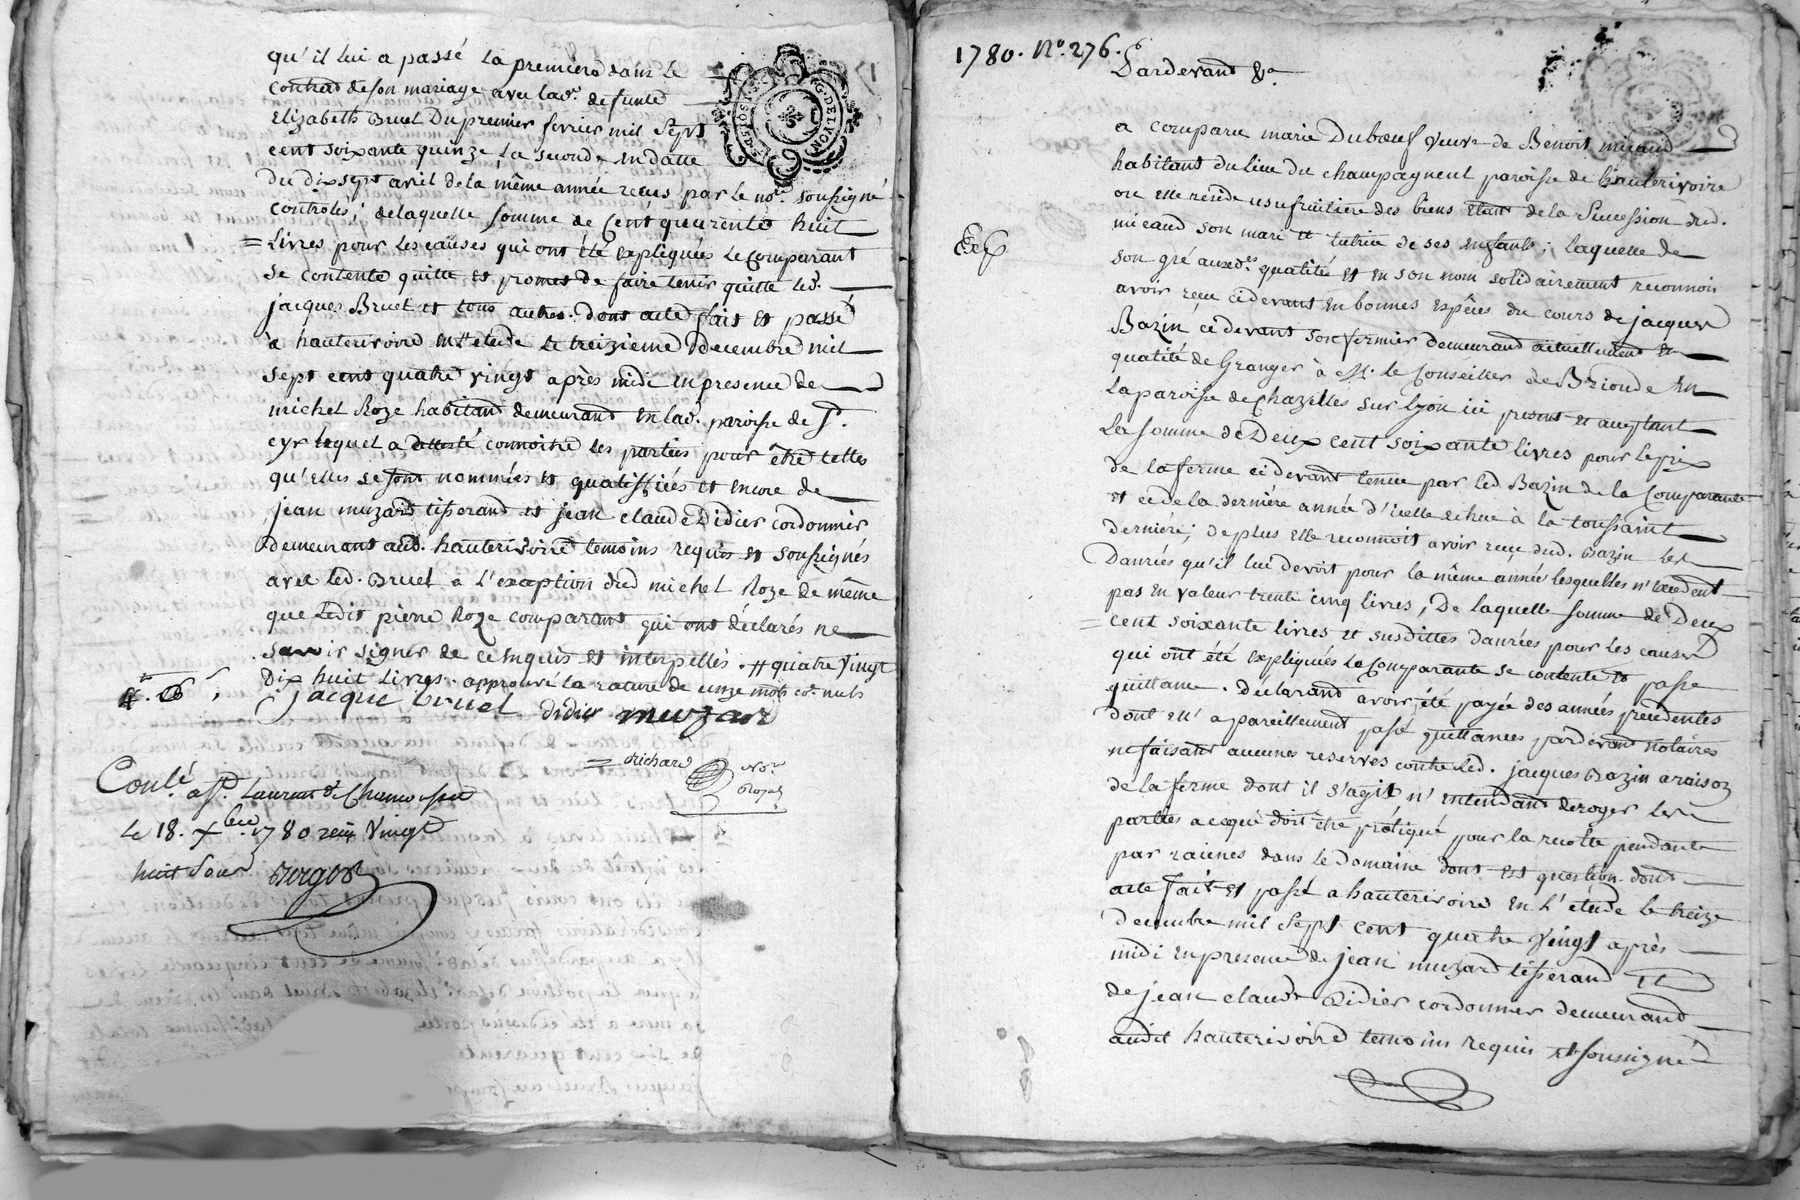 qu'il lui a passé la premiere dans le
contrat de son mariage avec lad.e defunte
Elizabeth Bruel du premier fevrier mil sept
cent soixante quinze la seconde en datte
du dix sept avril de la même année reçus par le no.re soussigné
controlés; de laquelle somme de cent quarente huit
= livres pour les causes qui ont été expliquées le comparant
se contente quitte et promet de faire tenir quitte led.
jacques Bruel et tous autres. dont acte fait et passé
à hauterivoire en l'étude le treizieme decembre mil
sept cent quatre vingt après midi en presence de
michel Roze habitant demeurant en lad. paroisse de S.t
cyr lequel a attesté connoitre les parties pour être telles
qu'elles se sont nommées et qualiffiées et encore de
jean muzard tisserand et jean claude Didier cordonnier
demeurant aud. hauterivoire temoins requis et soussignés
avec led. Bruel a l'exception dud michel Roze de même
que ledit pierre Roze comparant qui ont déclarés ne
savoir signer de ce enquis et interpellés. # quatre vingt
dix huit livres. approuvé la rature de onze mots co. nuls
#. B
jacque bruel didier muzard
= Richard No.re Royal
Conlé. a S.t Laurent de Chamousset
le 18. Xbre 1780 reçu vingt
huit sous Berger
G. DE LYON
1780. No. 276.
Pardevant &a
a comparu marie Dubœuf veuve de Benoit micaud
habitant du lieu du champagnent paroisse de hauterivoire
Exp
ou elle reside usufruitiere des biens etant de la succession dud.
micaud son mari et tutrice de ses enfants; laquelle de
son gré auxd.es qualité et en son nom solidairement reconnoit
avoir reçu cidevant en bonnes espéces du cours de jacques
Bazin cidevant son fermier demeurant actuellement en
qualité de Granger à M. le Conseiller de Brionde en
la paroisse de Chazelles sur lyon ici present et acceptant
la somme de Deux cent soixante livres pour le prix
de la ferme cidevant tenue par led Bazin de la comparante
et ce de la derniere année d'icelle echue à la toussaint
derniére; de plus elle reconnoit avoir reçu dud. Bazin les
Danrées qu'il lui devoit pour la même année lesquelles n'excedent
pas en valeur trente cinq livres, De laquelle somme de Deux
= cent soixante livres et susdittes danrées pour les causes
qui ont été expliquées la comparante se contente et passe
quittance. Declarant avoir été payée des années precedentes
dont ell' a pareillement passé quittances pardevant notaires
ne faisant aucunes reserves contre led. jacques Bazin a raison
de la ferme dont il s'agit n'entendant deroger les
parties a ce qui doit être pratiqué pour la recolte pendante
par racines dans le Domaine dont est question dont
acte fait et passé a hauterivoire en l'étude le treize
decembre mil sept cent quatre vingt après
midi en presence de jean muzard tisserand et
de jean claude Didier cordonnier demeurant
audit hauterivoire temoins requis et soussignés